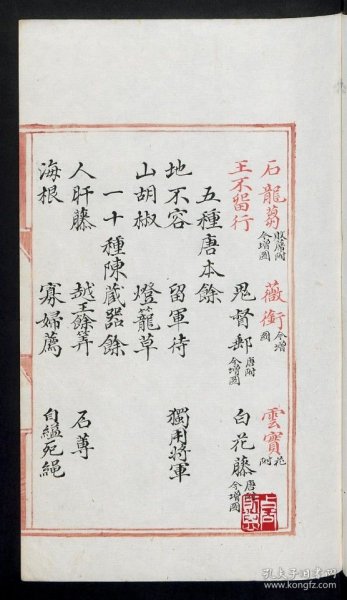 石龍蒭 敗席附 今增圖 薇銜 今增圖 雲實 花附
王不留行 鬼督郵 唐附 今增圖 白花藤 唐附 今增圖
五種唐本餘
地不容 留軍待 獨用將軍
山胡椒 燈籠草
一十種陳藏器餘
人肝藤 越王餘筭 石蓴
海根 寡婦薦 自縊死繩
孔夫子旧书网